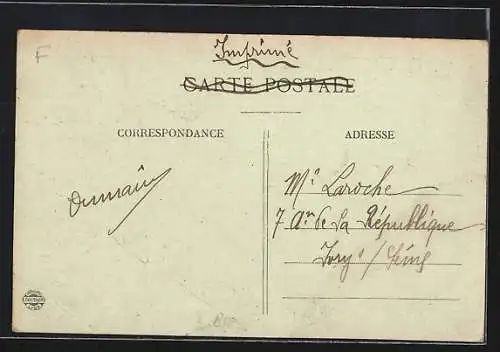 F
Imprimé
CARTE POSTALE
CORRESPONDANCE
ADRESSE
Mr Laroche
7 Ar de La République
Ivry s/ Seine
Dumain